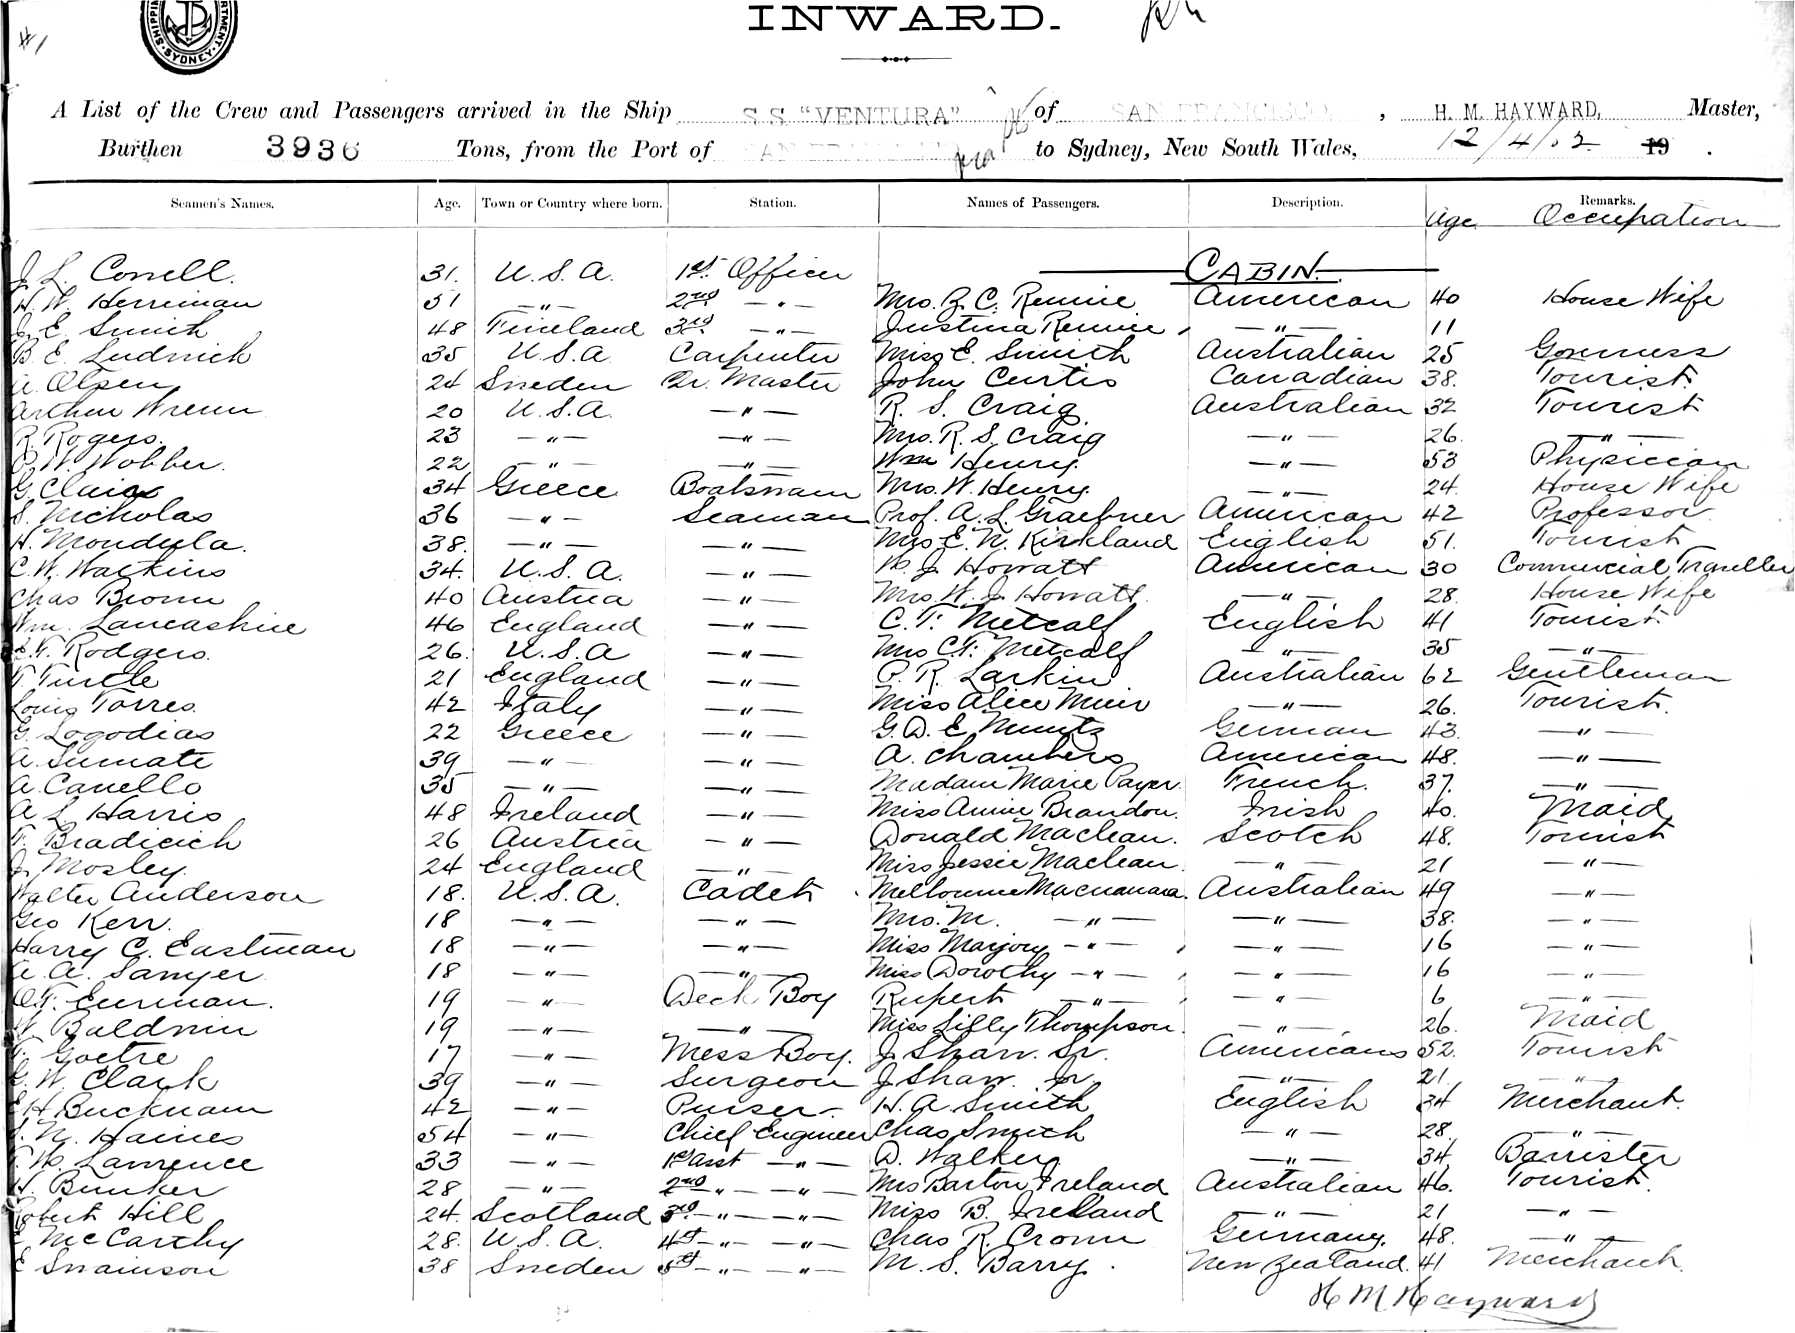 #1
SHIPPING DEPARTMENT. SYDNEY.
INWARD.
A List of the Crew and Passengers arrived in the Ship S.S. "VENTURA" of SAN FRANCISCO, H. M. HAYWARD, Master,
Burthen 3936 Tons, from the Port of SAN FRANCISCO to Sydney, New South Wales, 12/4/02 19 .
Seamen's Names. Age. Town or Country where born. Station. Names of Passengers. Description. Age Remarks. Occupation
J. L. Correll. 31. U.S.A. 1st Officer CABIN.
H. W. Herriman 51 —"— 2nd —"— Mrs. Z. C. Rennie American 40 House Wife
J. E. Smith 48 Fineland 3rd —"— Justina Rennie —"— 11
B E Ludwick 35 U.S.A Carpenter Miss E. Smith Australian 25 Governess
A. Olsen 24 Sweden Qr. Master John Curtis Canadian 38. Tourist.
Arthur Wrenn 20 U.S.A. —"— R. S. Craig Australian 32 Tourist
R. Rogers. 23 —"— —"— Mrs. R. S. Craig —"— 26. —"—
W. Wobber. 22 —"— —"— Wm Henry. —"— 53 Physician
G. Claios 34 Greece Boatswain Mrs. W. Henry. —"— 24. House Wife
S. Nicholas 36 —"— Seaman Prof. A. L. Graebner American 42 Professor
H. Mondula. 38. —"— —"— Mrs E. N. Kirkland English 51. Tourist
C. W. Watkins 34. U.S.A. —"— W. J. Howatt American 30 Commercial Traveller
Chas Brown 40 Austria —"— Mrs. W. J. Howatt. —"— 28. House Wife
Wm. Lancashire 46 England —"— C. T. Metcalf English 41 Tourist.
E. F. Rodgers. 26. U.S.A —"— Mrs C. T. Metcalf —"— 35 —"—
T. Turtle 21 England —"— P. R. Larkin Australian 62 Gentleman
Louis Torres. 42 Italy —"— Miss Alice Muir —"— 26. Tourist.
G. Logodias 22 Greece —"— G. D. E Muntz German 43. —"—
A. Sumate 39 —"— —"— A. Chambers American 48. —"—
A. Canello 35 —"— —"— Madam Marie Payer. French. 37. —"—
A L Harris 48 Ireland —"— Miss Annie Brandon. Irish 40. Maid
F. Bradicich 26 Austria —"— Donald Maclean. Scotch 48. Tourist
J. Mosley. 24 England —"— Miss Jessie Maclean —"— 21 —"—
Walter Anderson 18. U.S.A. Cadet Melbourne Macnamara. Australian 49 —"—
Geo Kerr. 18 —"— —"— Mrs. M. —"— —"— 38. —"—
Harry C. Eastman 18 —"— —"— Miss Marjory —"— —"— 16 —"—
A. A. Sawyer 18 —"— —"— Miss Dorothy —"— —"— 16 —"—
Eurman. 19 —"— Deck Boy Rupert —"— —"— 6 —"—
W. Baldwin 19 —"— —"— Miss Lilly Thompson. —"— 26. Maid
Goetre 17 —"— Mess Boy. J. Shaw. Sr. Americans 52. Tourist
G. W. Clark 39 —"— Surgeon J Shaw. Jr —"— 21. —"—
E H Bucknam 42 —"— Purser. H. A Smith English 34 Merchant.
N. Haines 54 —"— Chief Engineer Chas Smith —"— 28. —"—
W. Lawrence 33 —"— 1st Asst —"— D. Walker —"— 34 Barrister
H. Bunker 28 —"— 2nd —"— —"— Mrs Barton Ireland Australian 46. Tourist.
Robert Hill 24. Scotland 3rd —"— —"— Miss B. Ireland —"— 21 —"—
McCarthy 28. U.S.A. 4th —"— —"— Chas R. Crown Germany. 48. —"—
E Swainson 38 Sweden 5th —"— —"— M. S. Barry. New Zealand. 41 Merchant.
H M Hayward